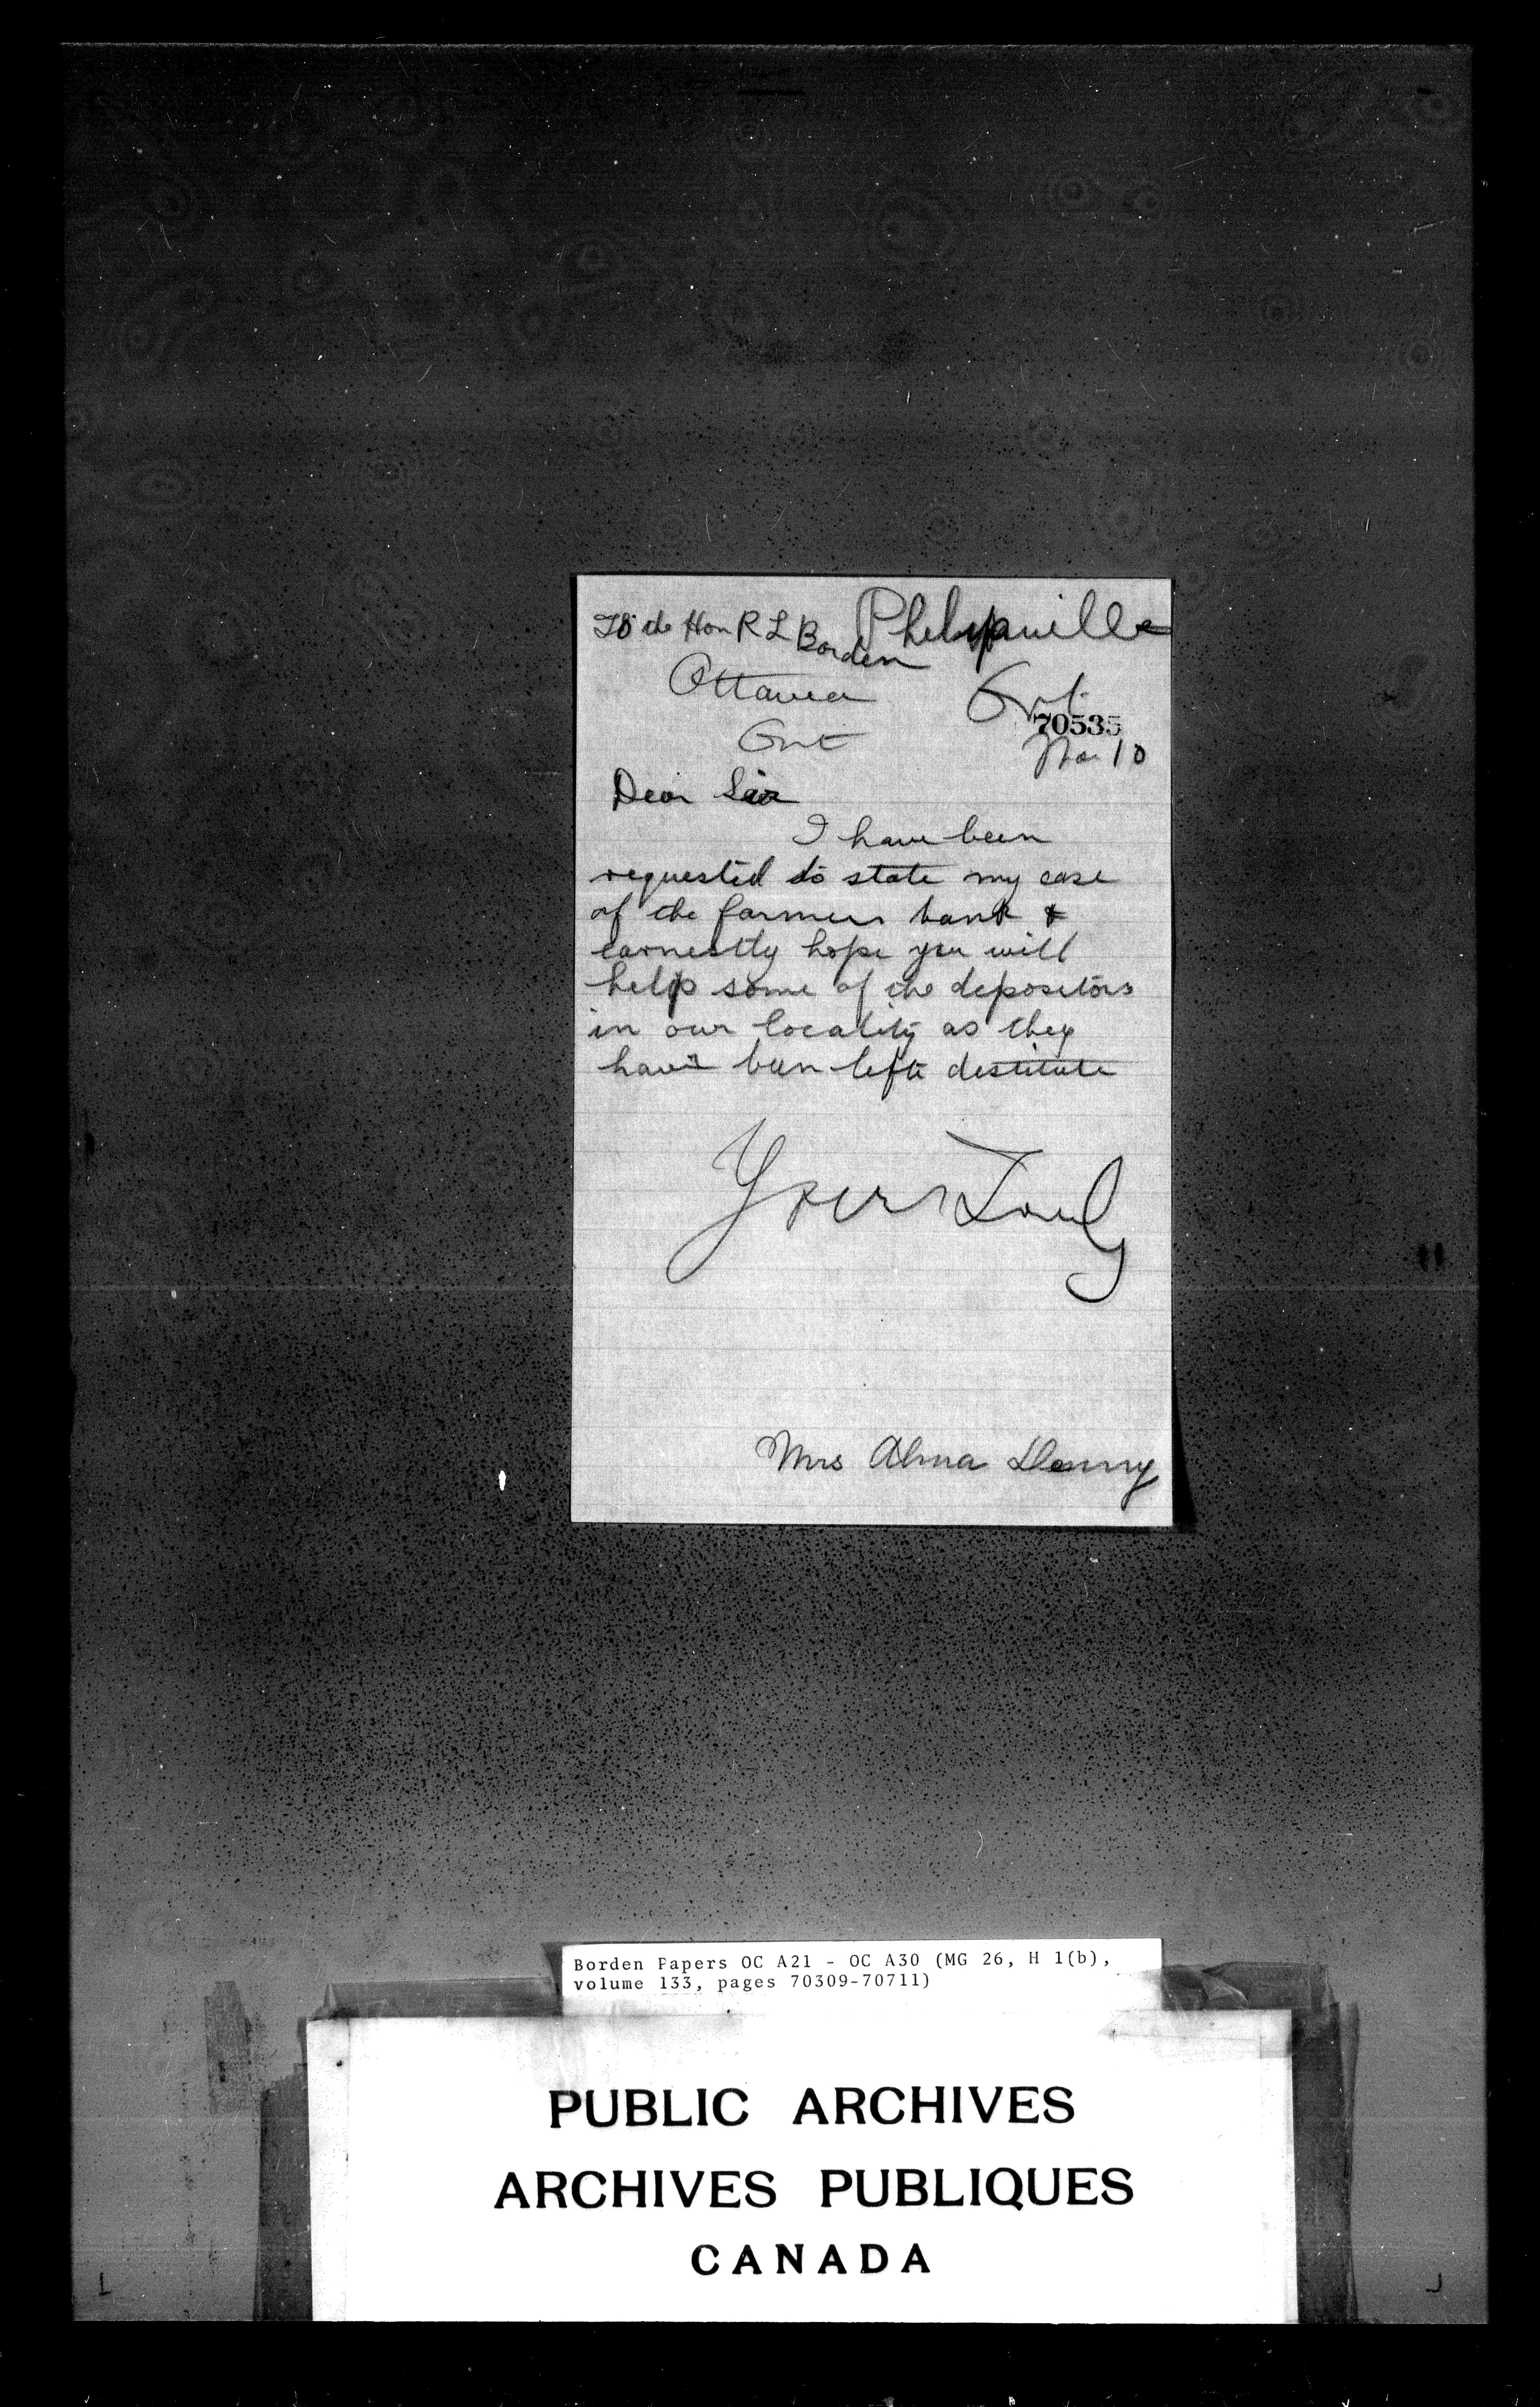 To the Hon R L Borden
Phelipsville
Ottawa
Ont
70535
Ont
No 10
Dear Sir
I have been
requested to state my case
of the farmers bank &
earnestly hope you will
help some of the depositors
in our locality as they
have been left destitute
Yours Truly
Mrs Alma Denny
Borden Papers OC A21 - OC A30 (MG 26, H 1(b),
volume 133, pages 70309-70711)
PUBLIC ARCHIVES
ARCHIVES PUBLIQUES
CANADA